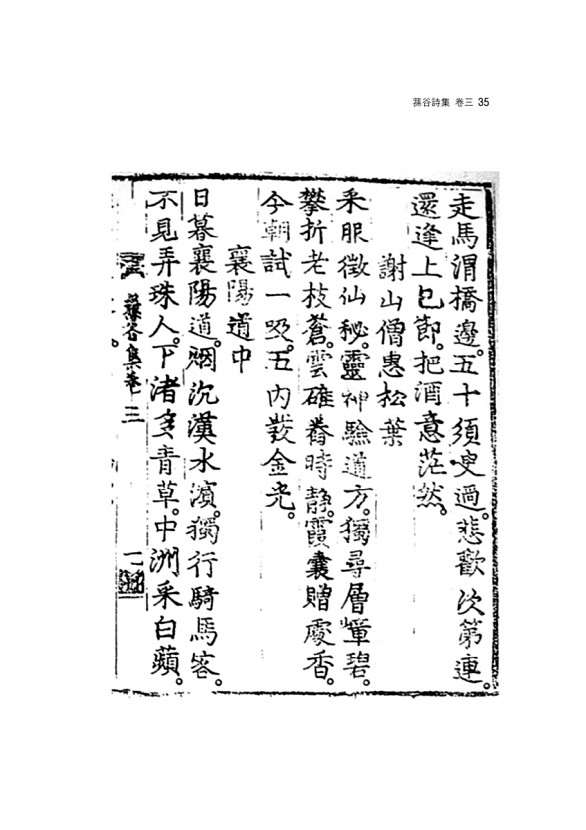 蓀谷詩集 卷三 35
走馬渭橋邊。五十須臾過。悲歡次第連。
還逢上巳節。把酒意茫然。
謝山僧惠松葉
采服徵仙秘。靈神驗道方。獨尋層嶂碧。
攀折老枝蒼。雲碓舂時静。霞囊贈處香。
今朝試一吸。五內發金光。
襄陽道中
日暮襄陽道。烟沉漢水濱。獨行騎馬客。
不見弄珠人。下渚多青草。中洲采白蘋。
蓀谷集卷三